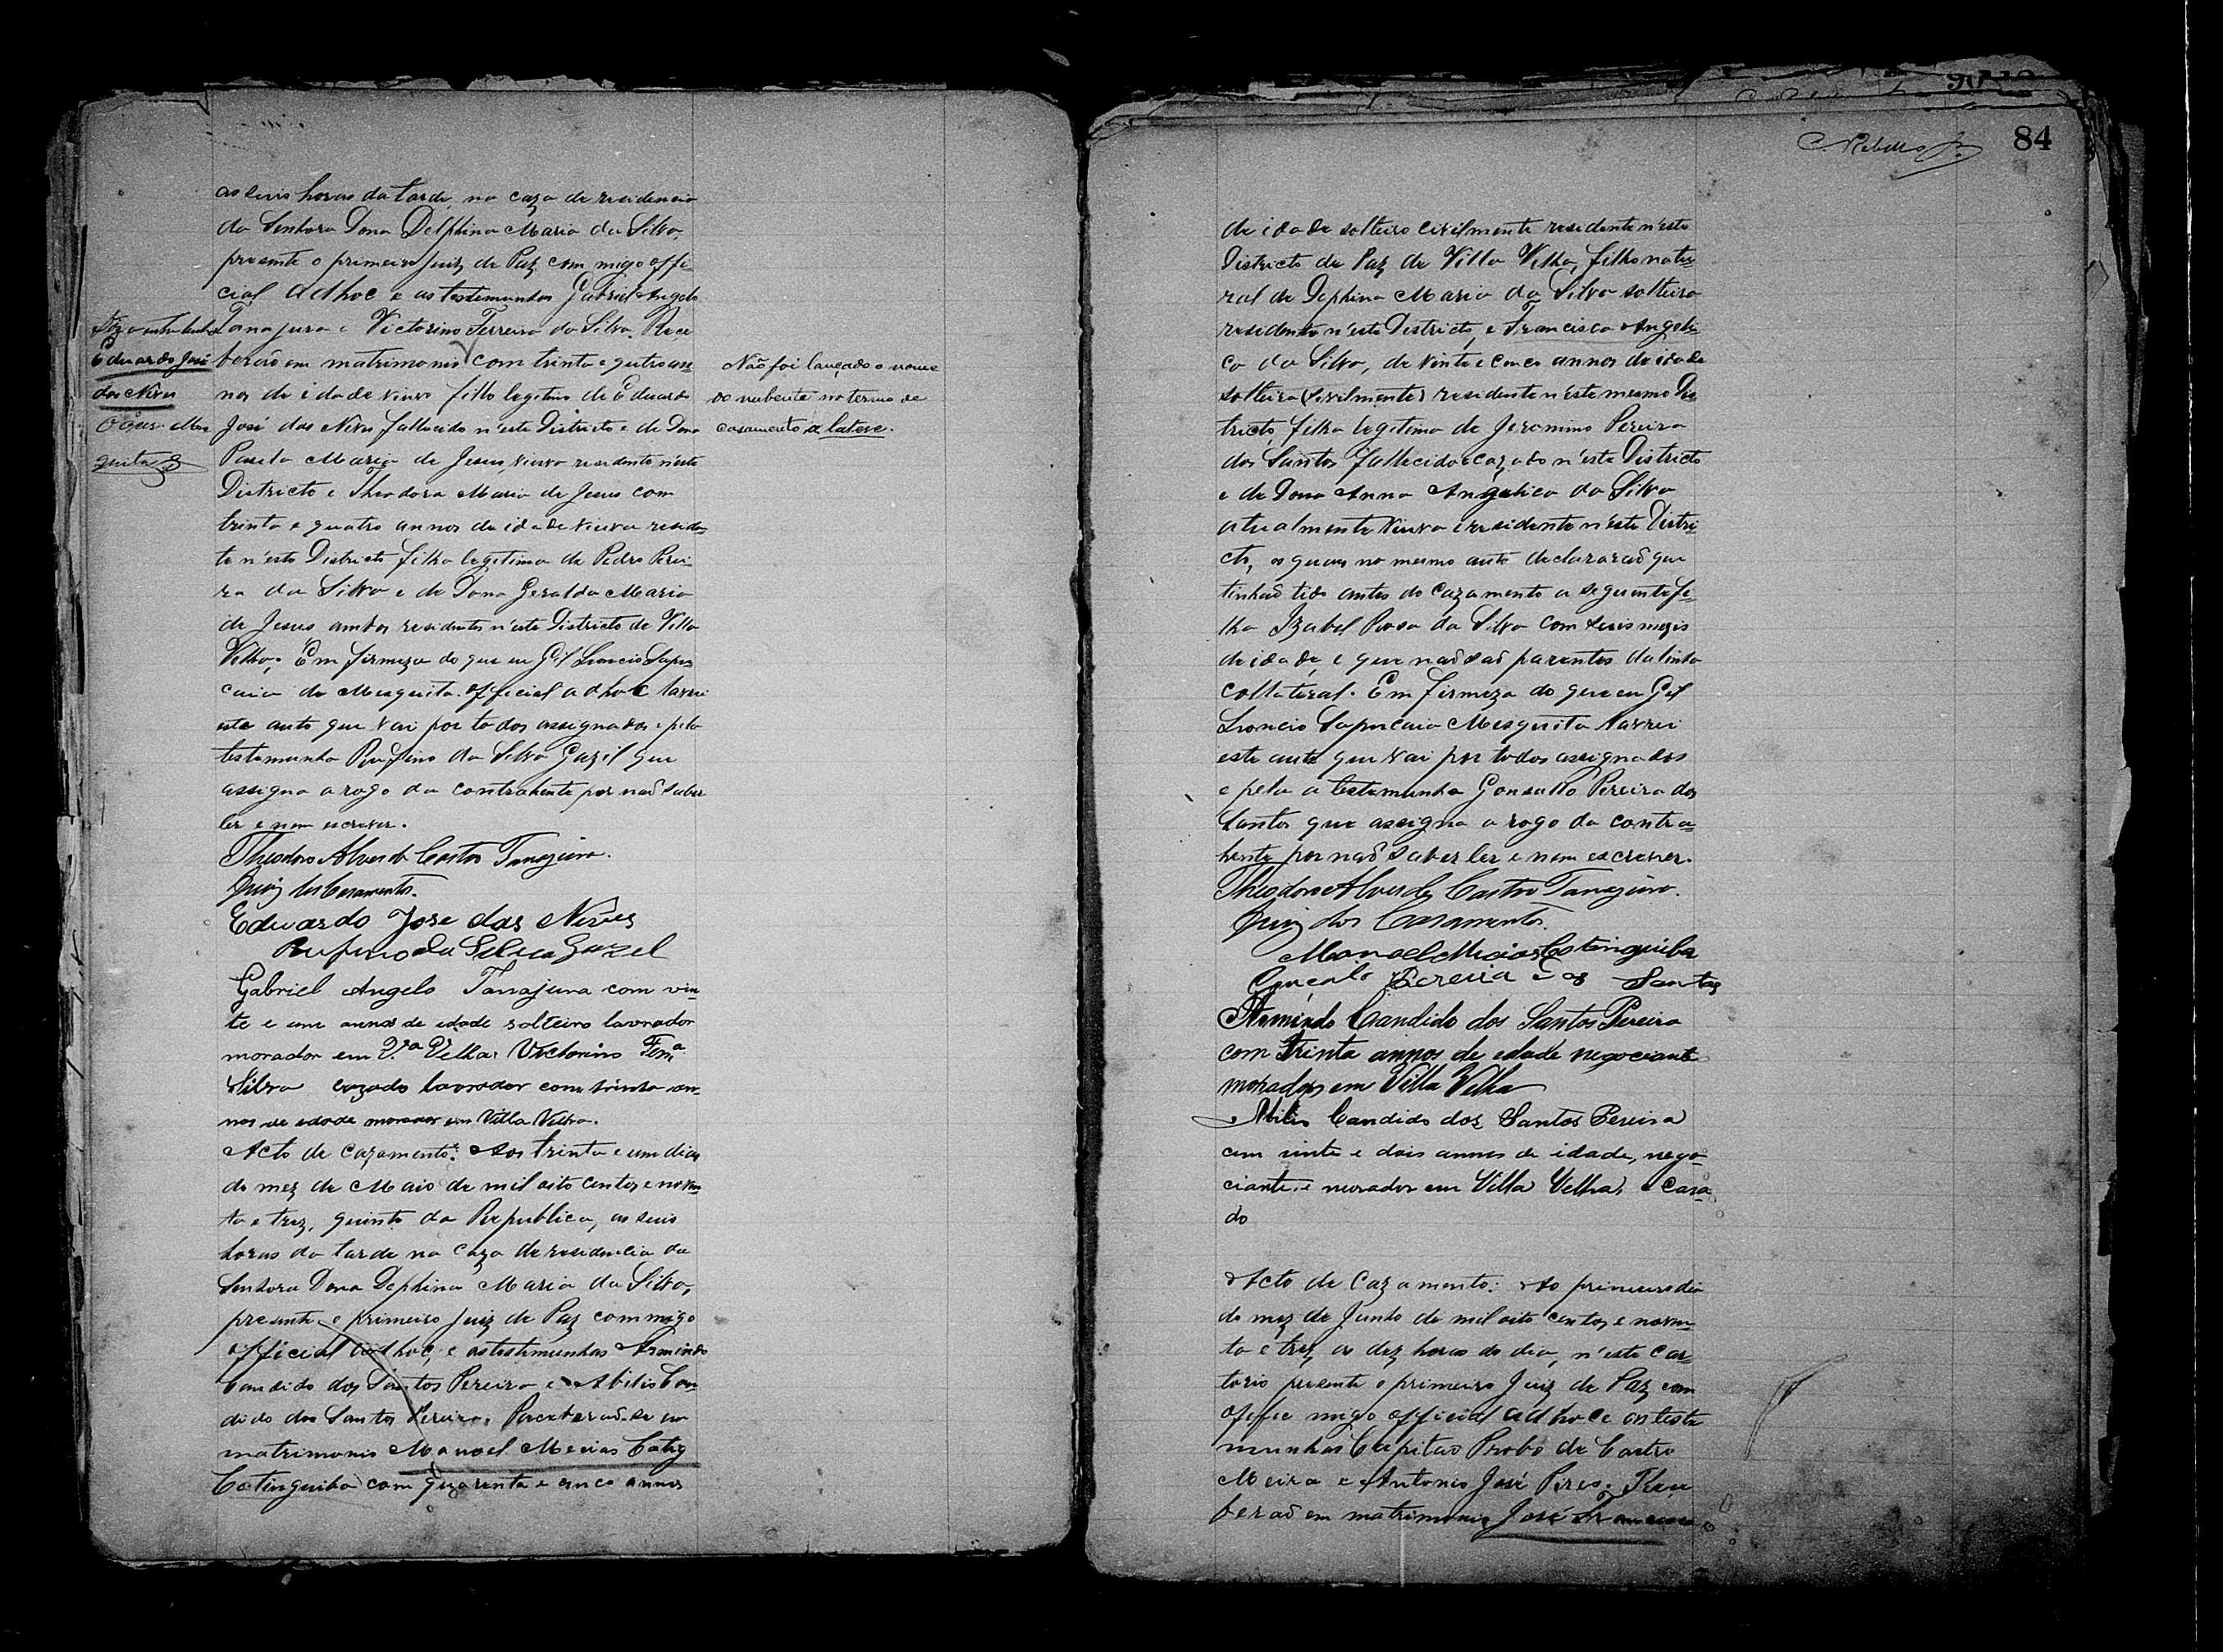 as seis horas da tarde, na caza de residencia
da Senhora Dona Delphina Maria da Silva,
presente o primeiro Juiz de Paz com migo offi-
cial adhoc e as testemunhas Gabriel Angelo
Tanajura e Victorino Ferreira da Silva. Rece
berão em matrimonio com trinta e qutro an-
nos de idade viuvo filho legitimo de Eduardo
José das Neves fallecido n'este Districto e de Dona
Maria de Jesus, viuva residente n'este
Districto e Theodora Maria de Jesus com
trinta e quatro annos de idade viuva residen-
te n'este Districto filha legitima de Pedro Perei-
ra da Silva e de Dona Geralda Maria
de Jesus ambos residentes n'este Districto de Villa
Velha. Em firmeza do que eu Gil Leoncio Sapu
caia de Mesquita official adhoc lavrei
este auto que vai por todos assignados e pela
testemunha Rufino da Silva Gazil que
assigna a rogo da contrahente por naõ saber
ler e nem escrever.
Theodoro Alves de Castro Tanajura.
Juiz dos Casamentos.
Eduardo José das Neves
Rufino da Silva Gazel
Gabriel Angelo Tanajura com vin-
te e um annos de edade solteiro lavrador
morador em Va Velha. Victorino Fera
Silva cazado lavrador com trinta an-
nos de edade morador em Villa Velha.
Acto de cazamento: Aos trinta e um dias
do mez de Maio de mil oito centos e noven
ta e trez, quinto da Republica, as seis
horas da tarde na caza de residencia da
Senhora Dona Dephina Maria da Silva,
presente o primeiro Juiz de Paz commigo
official adhoc, e as testimunhas Armindo
Candido dos Santos Pereira e Abilio Can-
dido dos Santos Pereira. Receberaõ-se em
matrimonio Manoel Mecias Catig
Cotinguiba com quarenta e cinco annos
Eduardo José
das Neves
O Offer. Mes
quita
Não foi lançado o nome
do nubente no termo de
casamento a latere.
C. Rebello Jr.
84
de idade solteiro civilmente residente n'este
Districto de Paz de Villa Velha, filho natu-
ral de Dephina Maria da Silva solteira
residente n'este Districto, e Francisca Angeli-
ca da Silva, de vinte e cinco annos de idade
solteira (civilmente) residente n'este mesmo Dis
tricto, filha legitima de Jeronimo Pereira
dos Santos fallecido e cazado n'este Districto
e de Dona Anna Angelica da Silva
atualmente viuva e residente n'este Distri-
cto, os quaes no mesmo auto declararaõ que
tinhaõ tido antes do cazamento a seguinte fi-
lha Izabel Rosa da Silva com seis mezis
de idade, e que naõ saõ parentes da linha
collateral. Em firmeza do que eu Gil
Leoncio Sapucaia Mesquita lavrei
este auto que vai por todos assignados
e pela a testemunha Gonsallo Pereira dos
Santos que assigna a rogo da contra-
hente por naõ saber ler e nem escrever.
Theodoro Alves de Castro Tanajura.
Juiz dos Casamentos.
Manoel Mecias Cotinguiba
Gonçalo Pereira dos Santos
Armindo Candido dos Santos Pereira
com trinta annos de edade negociante
morador em Villa Velha
Abilio Candido dos Santos Pereira
com vinte e dois annos de idade, nego-
ciante e morador em Villa Velha, e casa-
do
Acto de Cazamento: Ao primeiro dia
do mez de Junho de mil oito centos e noven-
ta e trez, as dez horas do dia, n'este Car-
torio presente o primeiro Juiz de Paz com
migo official adhoc e as teste
munhas Capitao Probo de Castro
Meira e Antonio José Pires. Rece
beraõ em matrimonio José Francisco